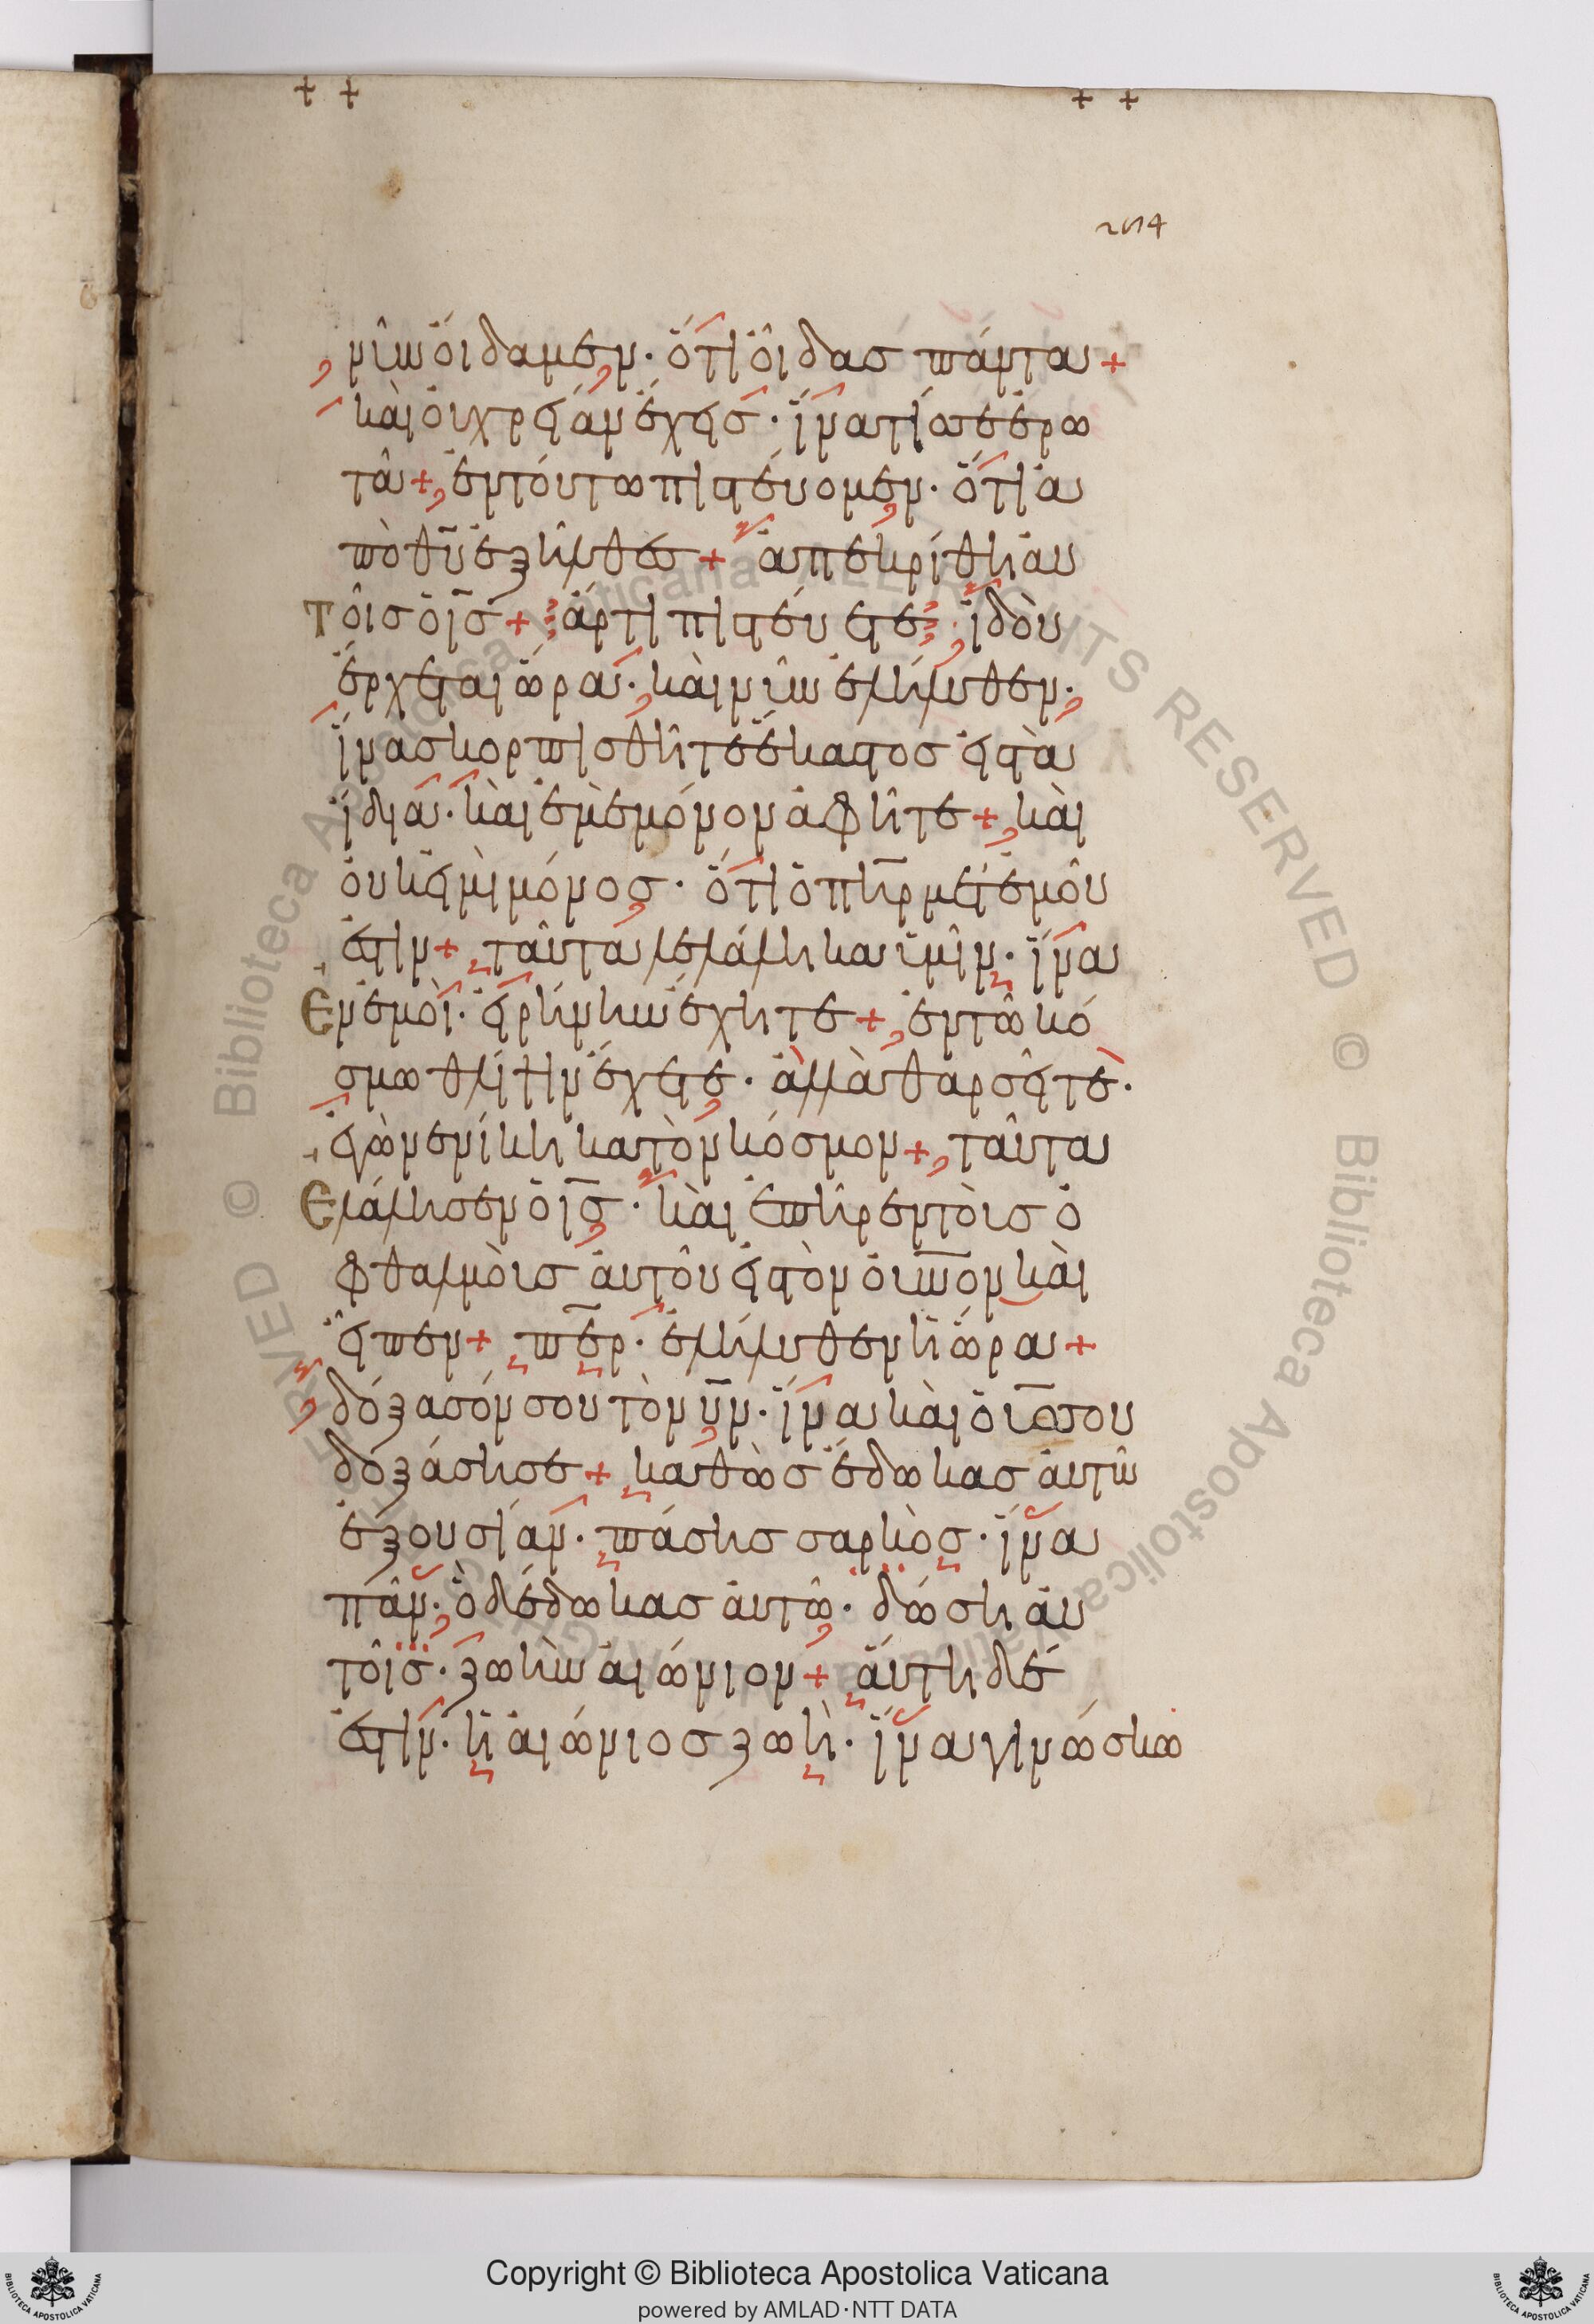 νῦν οἴδαμεν· ὅτι οἶδας πάντα +
καὶ οὐ χρείαν ἔχεις· ἵνα τίς σε ἐρω
τᾶ + ἐν τούτω πιστεύομεν· ὅτι ἀ
πὸ θ̅υ̅ ἐξῆλθες + ἀπεκρίθη αὐ
τοῖς ὁ ι̅ς̅ + ἄρτι πιστεύετε· ἰδοὺ
ἔρχεται ὥρα· καὶ νῦν ἐλήλυθεν·
ἵνα σκορπισθῆτε ἕκαστος εἰς τὰ
ἴδια· καὶ ἐμὲ μόνον ἀφῆτε + καὶ
οὐκ εἰμὶ μόνος· ὅτι ὁ π̅η̅ρ̅ μετ' ἐμοῦ
ἐστιν + ταῦτα λελάληκα ὑμῖν· ἵνα
ἐν ἐμοὶ· εἰρήνην ἔχητε + ἐν τῶ κό
σμω θλίψιν ἔχετε· ἀλλὰ θαρσεῖτε·
ἐγὼ νενίκηκα τὸν κόσμον + ταῦτα
ἐλάλησεν ὁ ι̅ς̅· καὶ ἐπῆρεν τοὺς ὀ
φθαλμοὺς αὐτοῦ εἰς τὸν ο̅υ̅ν̅ο̅ν̅ καὶ
εἶπεν + π̅ε̅ρ̅· ἐλήλυθεν ἡ ὥρα +
δόξασόν σου τὸν υ̅ν̅· ἵνα καὶ ὁ υ̅ς̅ σου
δοξάση σε + καθὼς ἔδωκας αὐτῶ
ἐξουσίαν· πάσης σαρκὸς· ἵνα
πᾶν· ὃ δέδωκας αὐτῶ· δώση αὐ
τοῖς· ζωὴν αἰώνιον + αὕτη δέ
ἐστιν· ἡ αἰώνιος ζωὴ· ἵνα γινώσκω
Copyright © Biblioteca Apostolica Vaticana
powered by AMLAD·NTT DATA